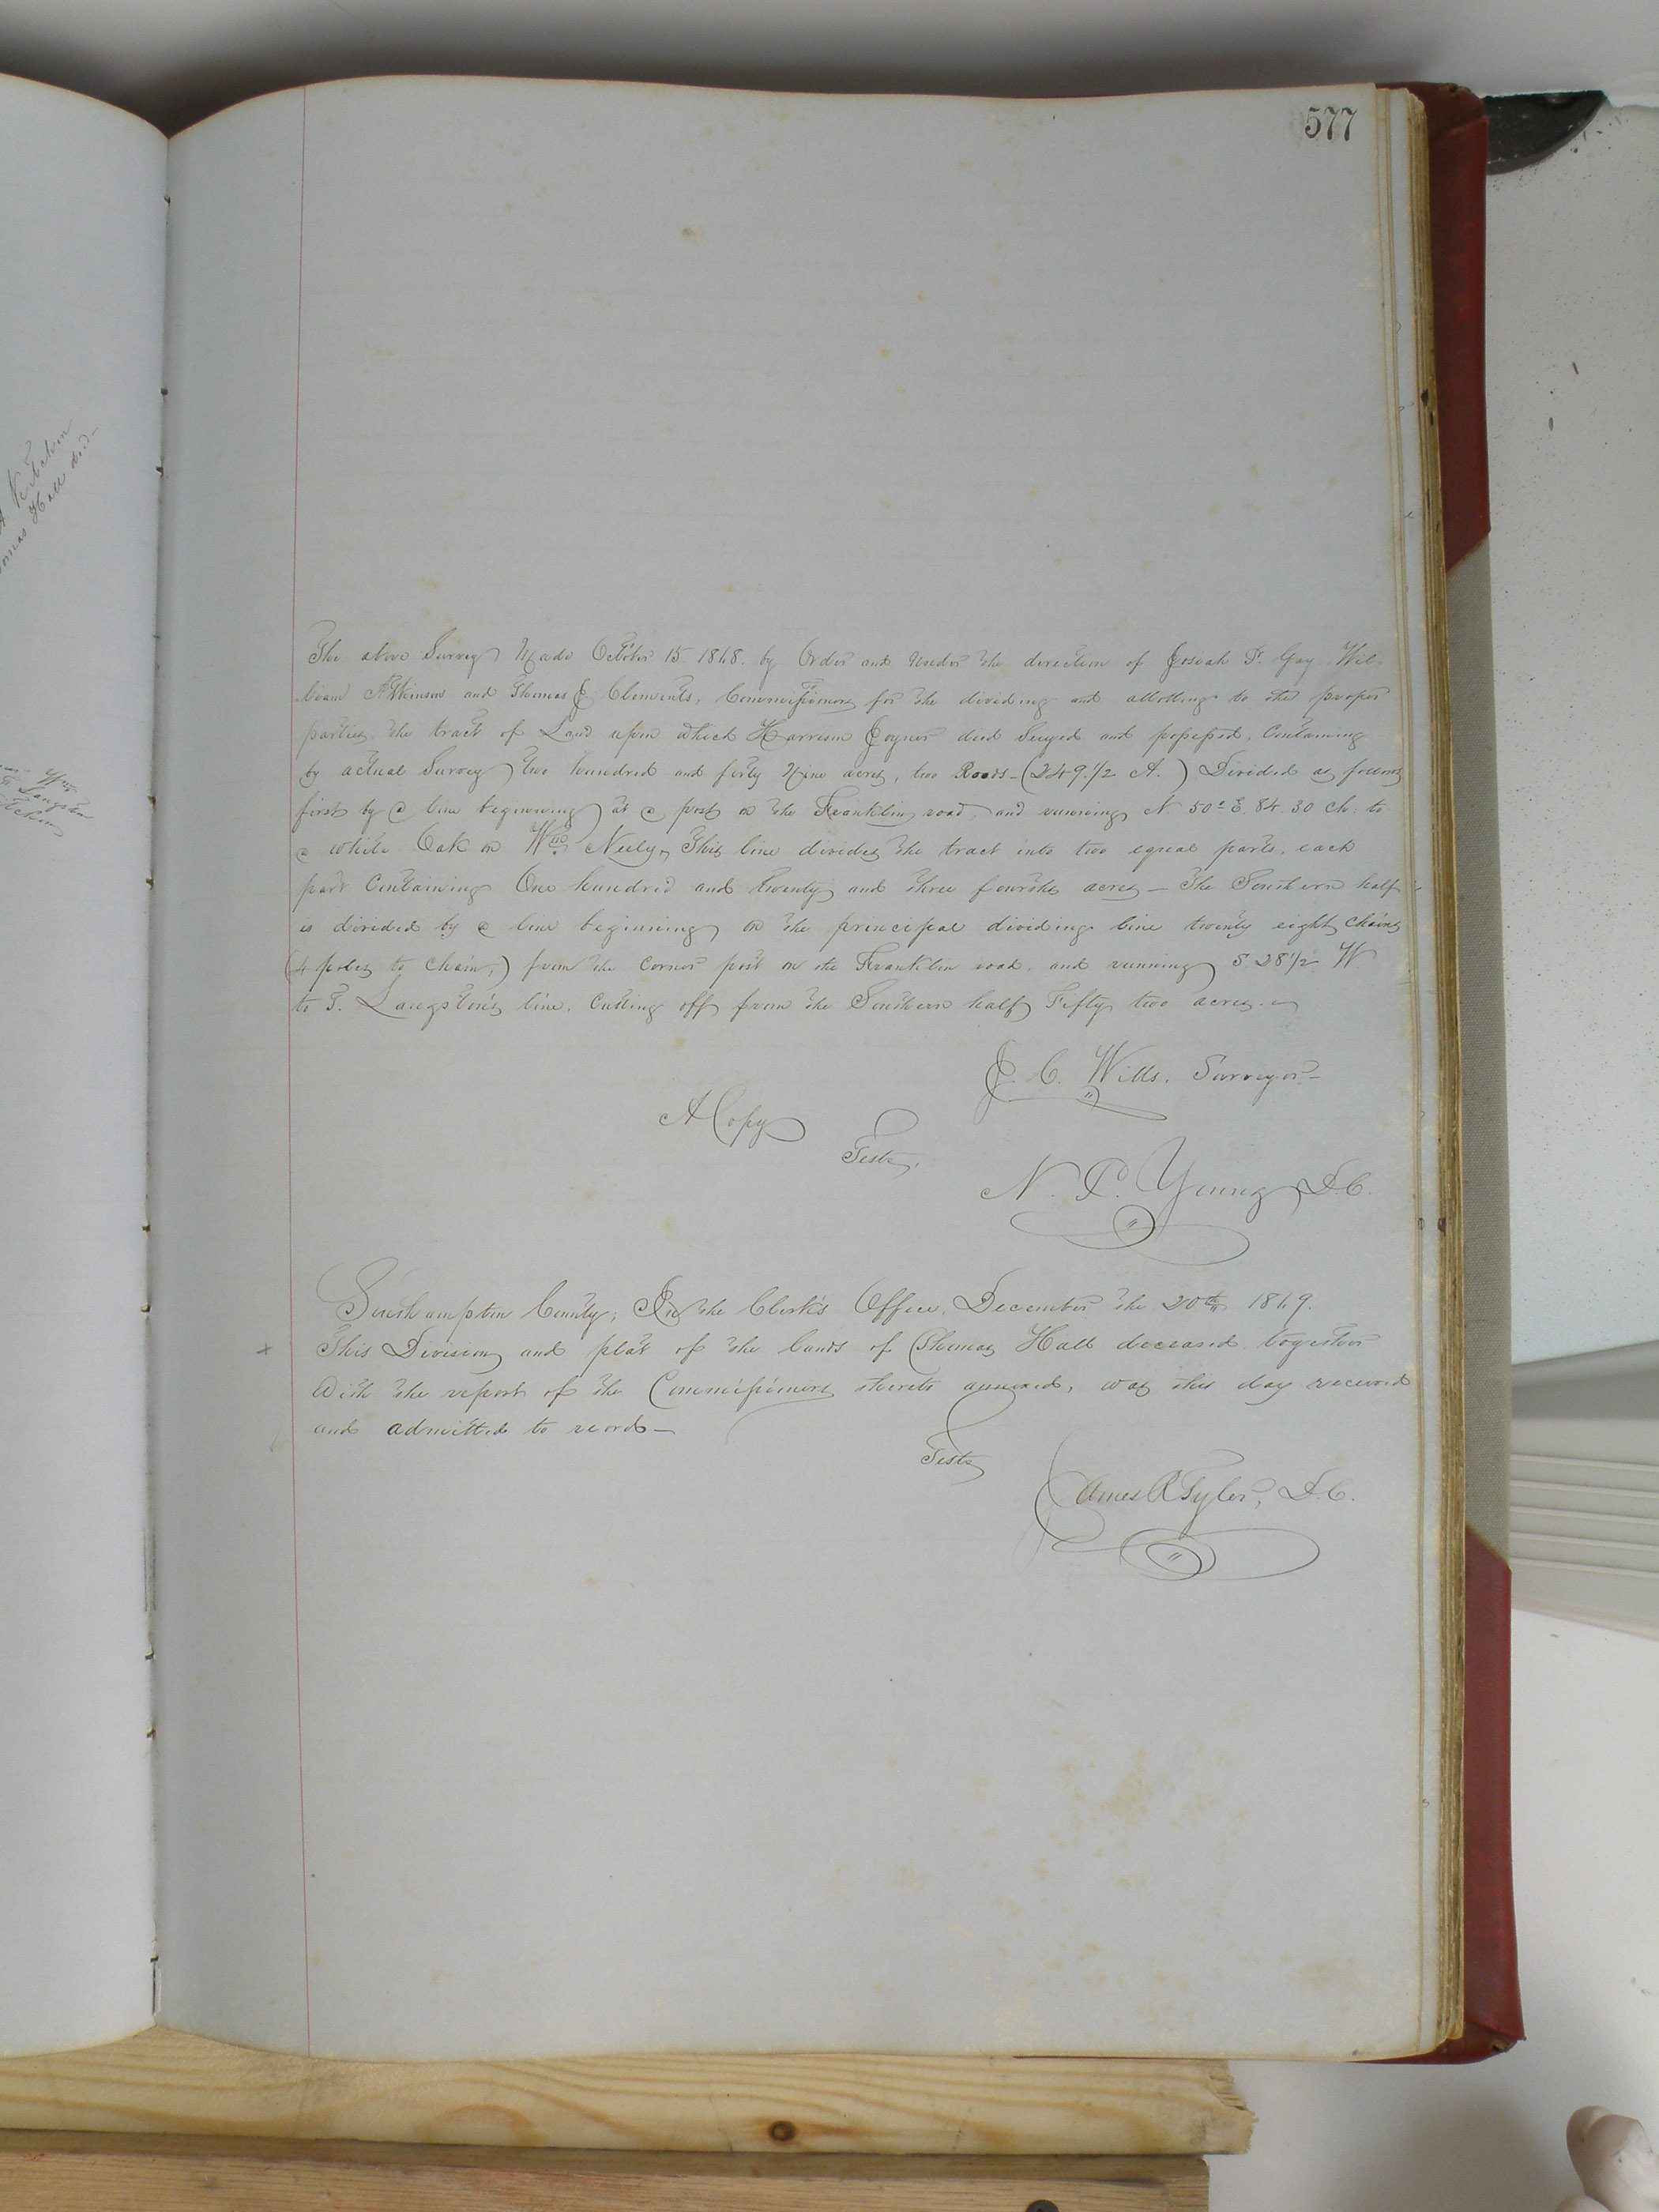 577
The above Survey Made October 15 1868. by Order and Under the direction of Josiah T. Gay. Wil-
liam Atkinson and Thomas J Clements, Commissioners for the dividing and allotting to the proper
parties the tract of Land upon which Harrison Joyner died Seized and possessed, Containing
by actual Survey two hundred and forty Nine acres, two Roods - (249.1/2 A.) Divided as follows
first by a line beginning at a post on the Franklin road, and running N. 50° E. 84.30 ch. to
a white Oak on Wm Neely, This line divides the tract into two equal parts, each
part Containing One hundred and twenty and three fourths acres - The Southern half
is divided by a line beginning on the principal dividing line twenty eight chains
(4 poles to Chain,) from the Corner post on the Franklin road, and running S 28 1/2 W
to T. Langston's line, Cutting off from the Southern half Fifty two acres.
J. C. Wills, Surveyor-
A Copy
Teste,
N. P. Young, D.C.
Southampton County; In the Clerk's Office, December the 20th 1869.
This Division and plat of the lands of Thomas Hall deceased together
With the report of the Commissioners thereto annexed, was this day received
and admitted to record-
Teste
James R Tyler, D.C.